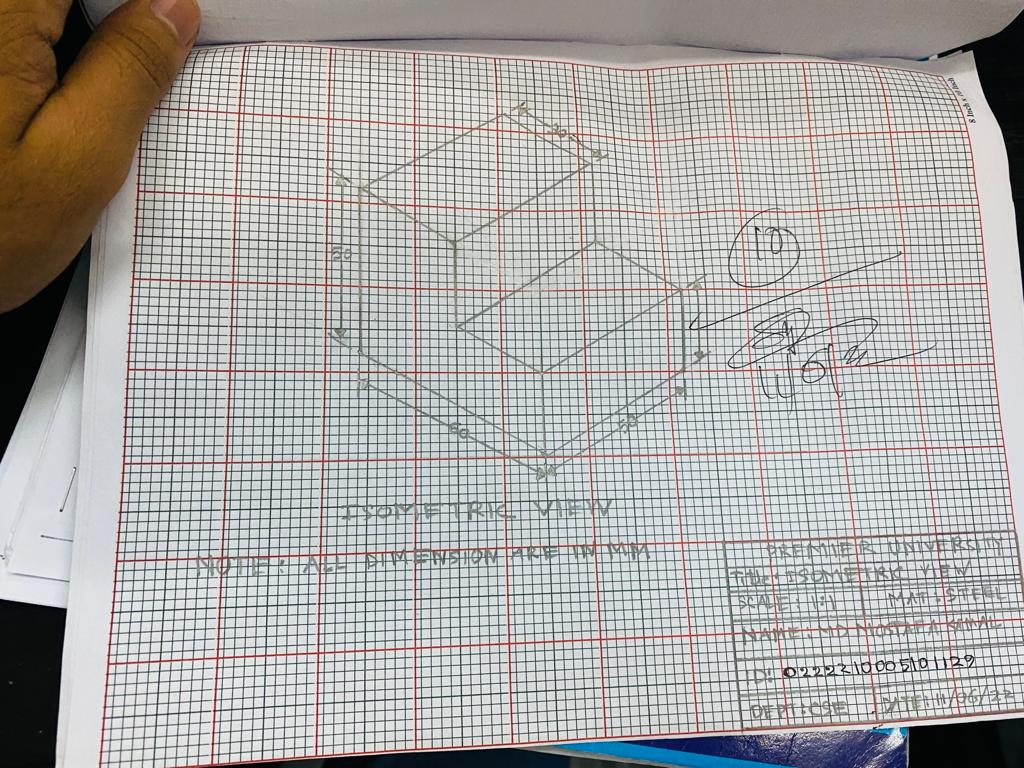 30
50
10
60
50
ISOMETRIC VIEW
NOTE: ALL DIMENSION ARE IN MM
PREMIER UNIVERSITY
Title: ISOMETRIC VIEW
SCALE: 1:1 MAT: STEEL
NAME: MD MOSTAFA KAMAL
ID: 0222210005101129
DEPT: CSE DATE: 11/06/22